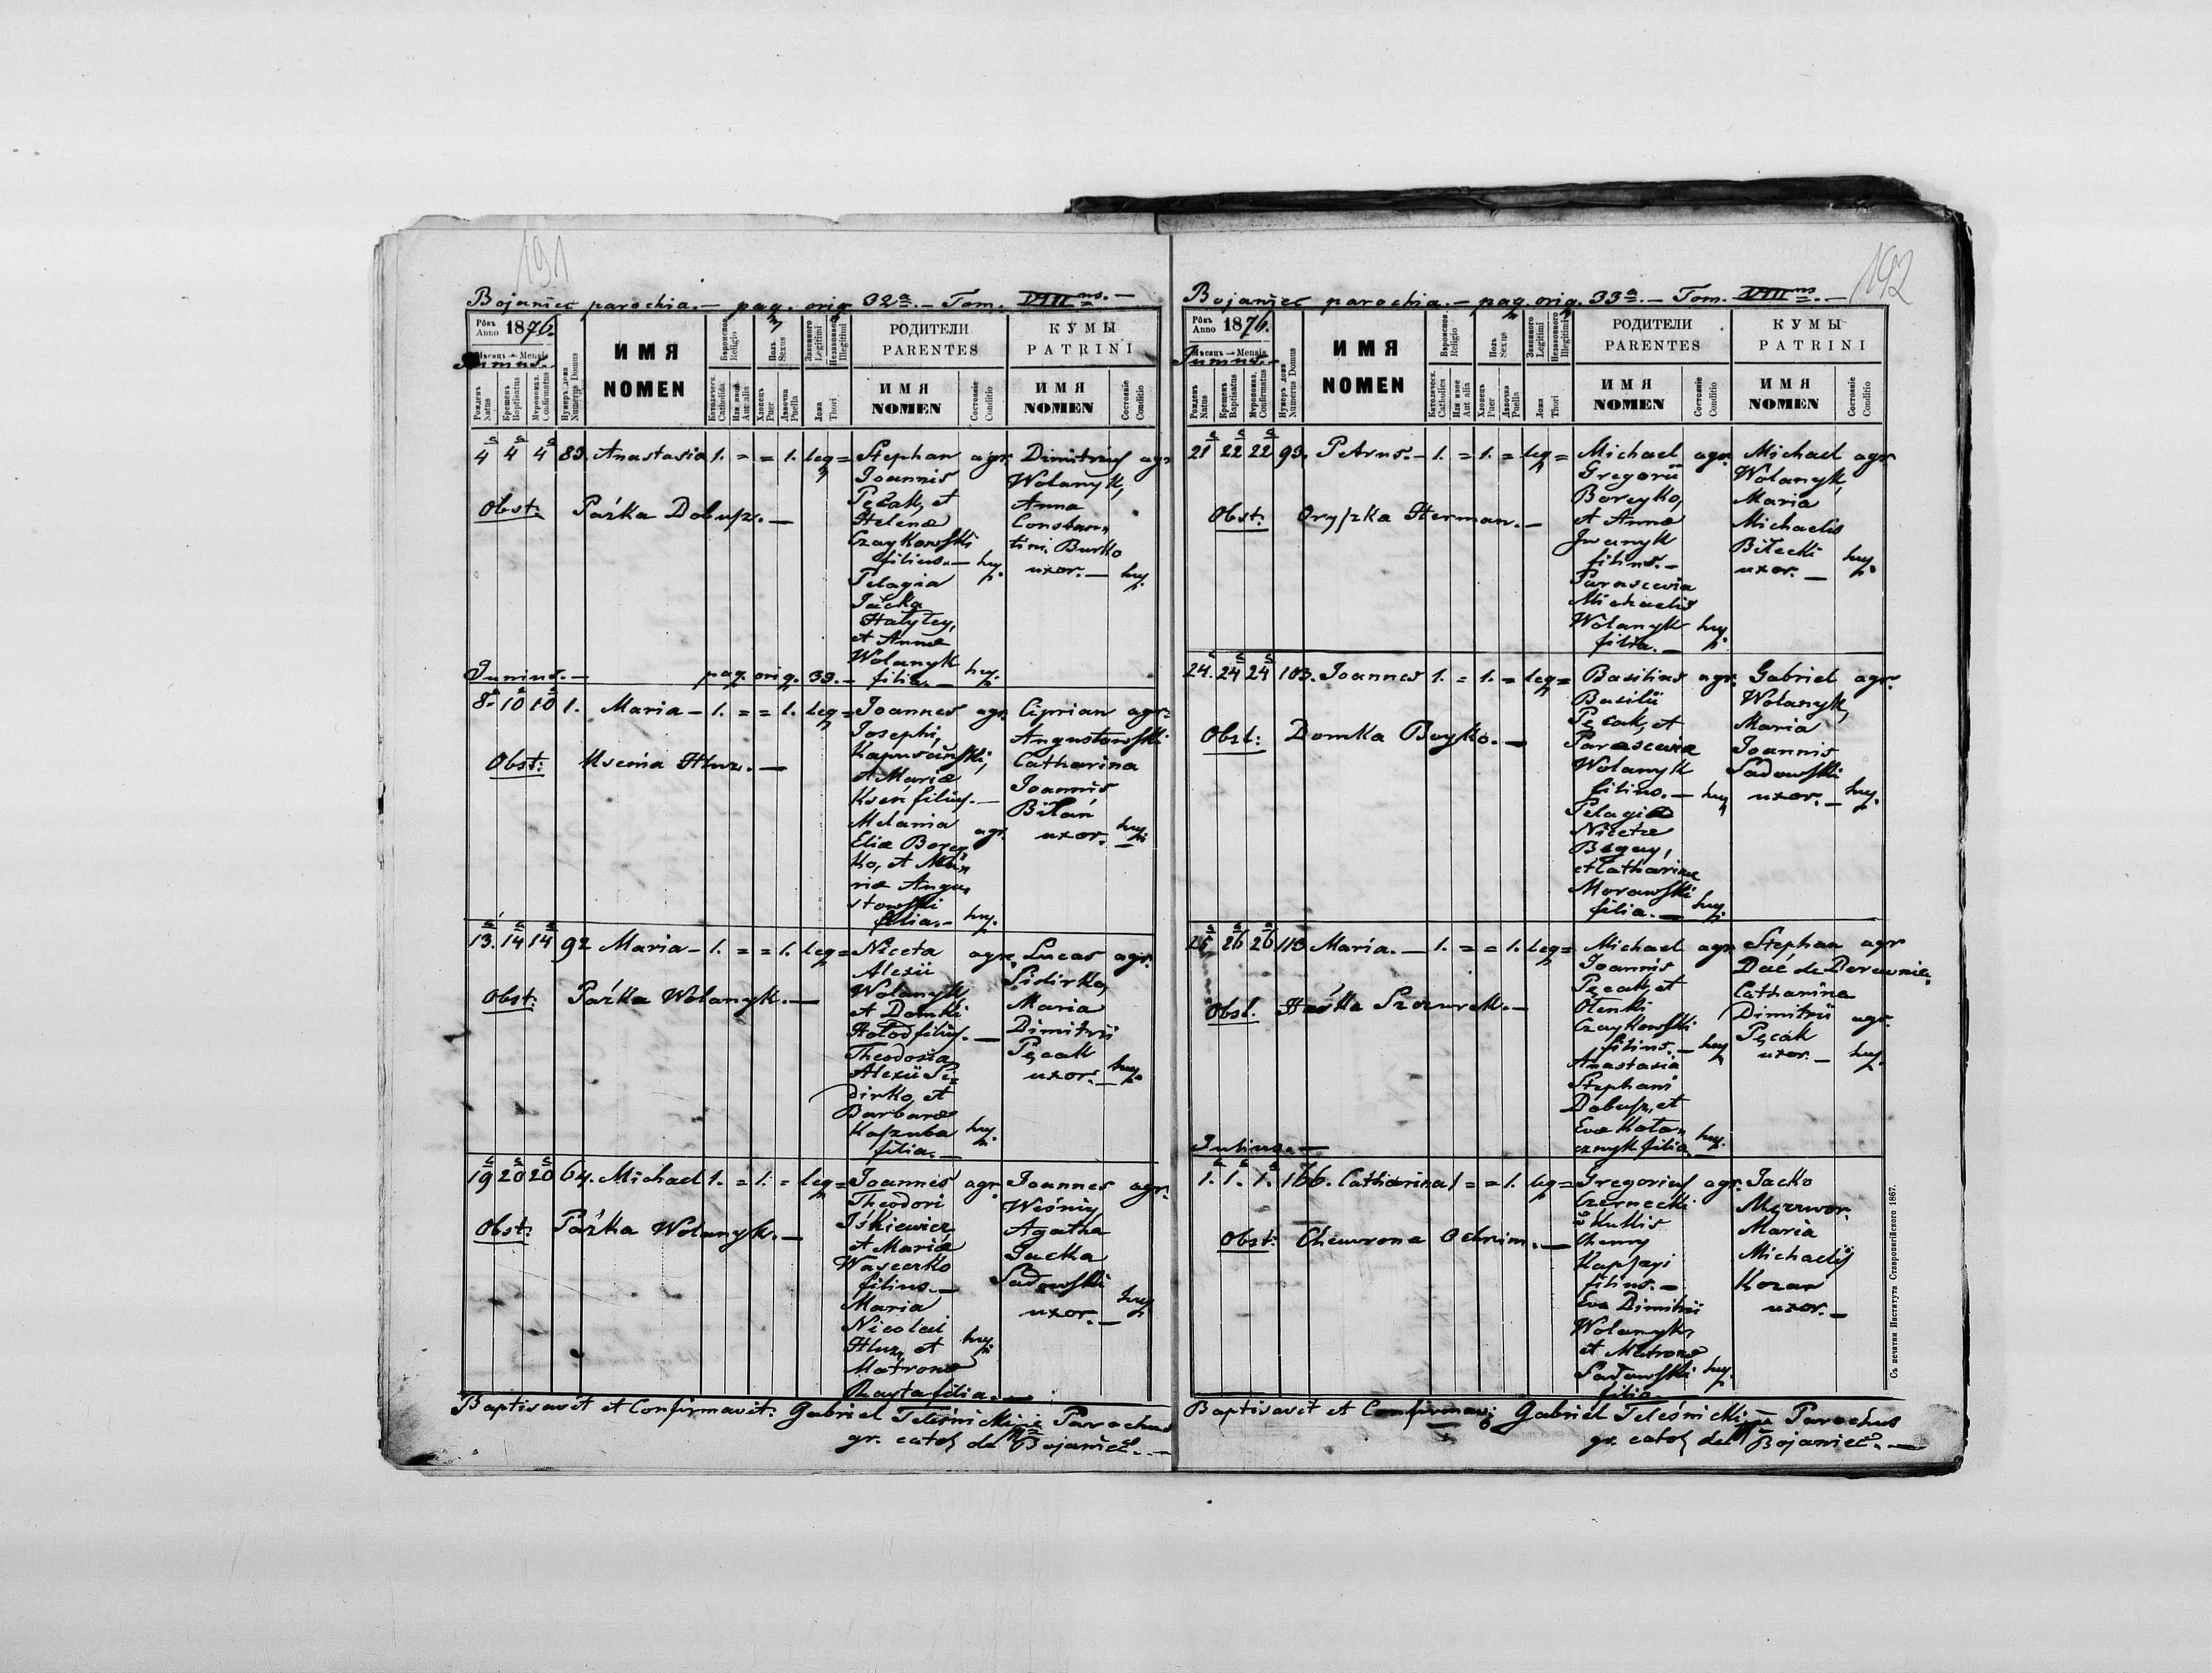 191
Bojaniec parochia.— pag. orig. 32ª.— Tom. VIII ns.—
Рôкъ
Anno 1876.
Мѣсяць — Mensis
Junius.—
Рожденъ
Natus
Крещенъ
Baptisatus
Мѵропомаз.
Confirmatus
Нумеръ дома
Numerus Domus
ИМЯ
NOMEN
Вѣроиспов.
Religio
Католическ.
Catholica
Или иное
Aut alia
Полъ
Sexus
Хлопецъ
Puer
Дѣвочка
Puella
Законного
Legitimi
Незаконного
Illegitimi
Ложа
Thori
РОДИТЕЛИ
PARENTES
ИМЯ
NOMEN
Состояніе
Conditio
КУМЫ
PATRINI
ИМЯ
NOMEN
Состояніе
Conditio
4 4 4 83. Anastasia 1. = = 1. leg = Stephan agr. Dimitrius agr
Joannis Wolanyk,
Pęcak, et Anna
Obst: Pazka Dobusz.—
Helenæ Constan,,
Czaykowski tini Burko
filius.— huj. uxor.— huj.
Pelagia
Jacka
Hatyley,
et Annæ
Wolanyk
Junius.— pag. orig. 33.— filia.— huj.
8. 10 10 1. Maria — 1. = = 1. leg = Joannes agr. Ciprian agr.
Josephi, Augustowski
Kapuściński, Catharina
Obst: Ksenia Hluz.—
et Mariæ Joannis
Ksen filius.— Biłan
Melania agr. uxor. huj.
Eliæ Borey,,
ko, et Ma,,
riæ Augu,,
stowski
filia.— huj.
13. 14 14 92 Maria — 1. = = 1. leg = Niceta agr. Lucas agr.
Alexii Sidirko,
Wolanyk Maria
Obst: Pazka Wolanyk.—
et Domki Dimitrii
Hołod filius.— Pęcak
Theodosia uxor.— huj.
Alexii Si=
dirko, et
Barbaræ
Kaszuba huj.
filia.—
19 20 20 64. Michael 1. = 1. = leg = Joannes agr. Joannes agr.
Theodori Wiśniy
Iśkiewicz Agatha
Obst: Pazka Wolanyk.—
et Mariæ Jacka
Waseczko Sadowski
filius.— uxor.— huj
Maria
Nicolai
Hluz, et huj
Matronæ
filia.—
Baptisavit et Confirmavit: Gabriel Teleśnicki Parochus
gr. cath de Bojaniec.—
192
Bojaniec parochia.— pag. orig. 33ª.— Tom. VIII ns.—
Рôкъ
Anno 1876.
Мѣсяць — Mensis
Junius.—
Рожденъ
Natus
Крещенъ
Baptisatus
Мѵропомаз.
Confirmatus
Нумеръ дома
Numerus Domus
ИМЯ
NOMEN
Вѣроиспов.
Religio
Католическ.
Catholica
Или иное
Aut alia
Полъ
Sexus
Хлопецъ
Puer
Дѣвочка
Puella
Законного
Legitimi
Незаконного
Illegitimi
Ложа
Thori
РОДИТЕЛИ
PARENTES
ИМЯ
NOMEN
Состояніе
Conditio
КУМЫ
PATRINI
ИМЯ
NOMEN
Состояніе
Conditio
21 22 22 93. Petrus.— 1. = 1. = leg = Michael agr. Michael agr
Gregorii Wolanyk,
Boreyko, Maria
Obst: Oryszka Herman.—
et Annæ Michaelis
Iwanyk Biłecki huj.
filius.— uxor.—
Parascevia
Michaelis
Wolanyk huj
filia.—
24. 24 24 103. Joannes 1. = 1. = leg = Basilius agr. Gabriel agr.
Basilii Wolanyk,
Pęcak, et Maria
Obst: Domka Boyko.—
Parasceviæ Joannis
Wolanyk Sadowski
filius.— huj uxor.— huj.
Pelagia
Nicetæ
Beguy,
et Catharinæ
Morawski
filia.— huj.
25 26 26 113 Maria.— 1. = = 1. leg = Michael agr. Stephan agr
Joannis Dac de Derewnia.
Pęcak, et Catharina
Obst. Haśka Szczurek.—
Olenki Dimitrii agr.
Czaykowski Pęcak
filius.— huj uxor.— huj.
Anastasia
Stephani
Dobusz, et
Evæ Koła,,
cznyk filia huj.
Julius.—
1. 1. 1. 166. Catharina 1 = = 1. leg = Gregorius agr. Jacko
Czernecki Mezzwor.
Maria
Obst: Chewrona Ochrim.—
Michaelis
filius.— Kozar
Eva Dimitrii uxor.—
Wolanyk,
et Matronæ
Sadowski huj.
filia.—
Baptisavit et Confirmavi: Gabriel Teleśnicki Parochus
gr. cath de Bojaniec.—
Съ печатни Института Ставропигійского 1867.